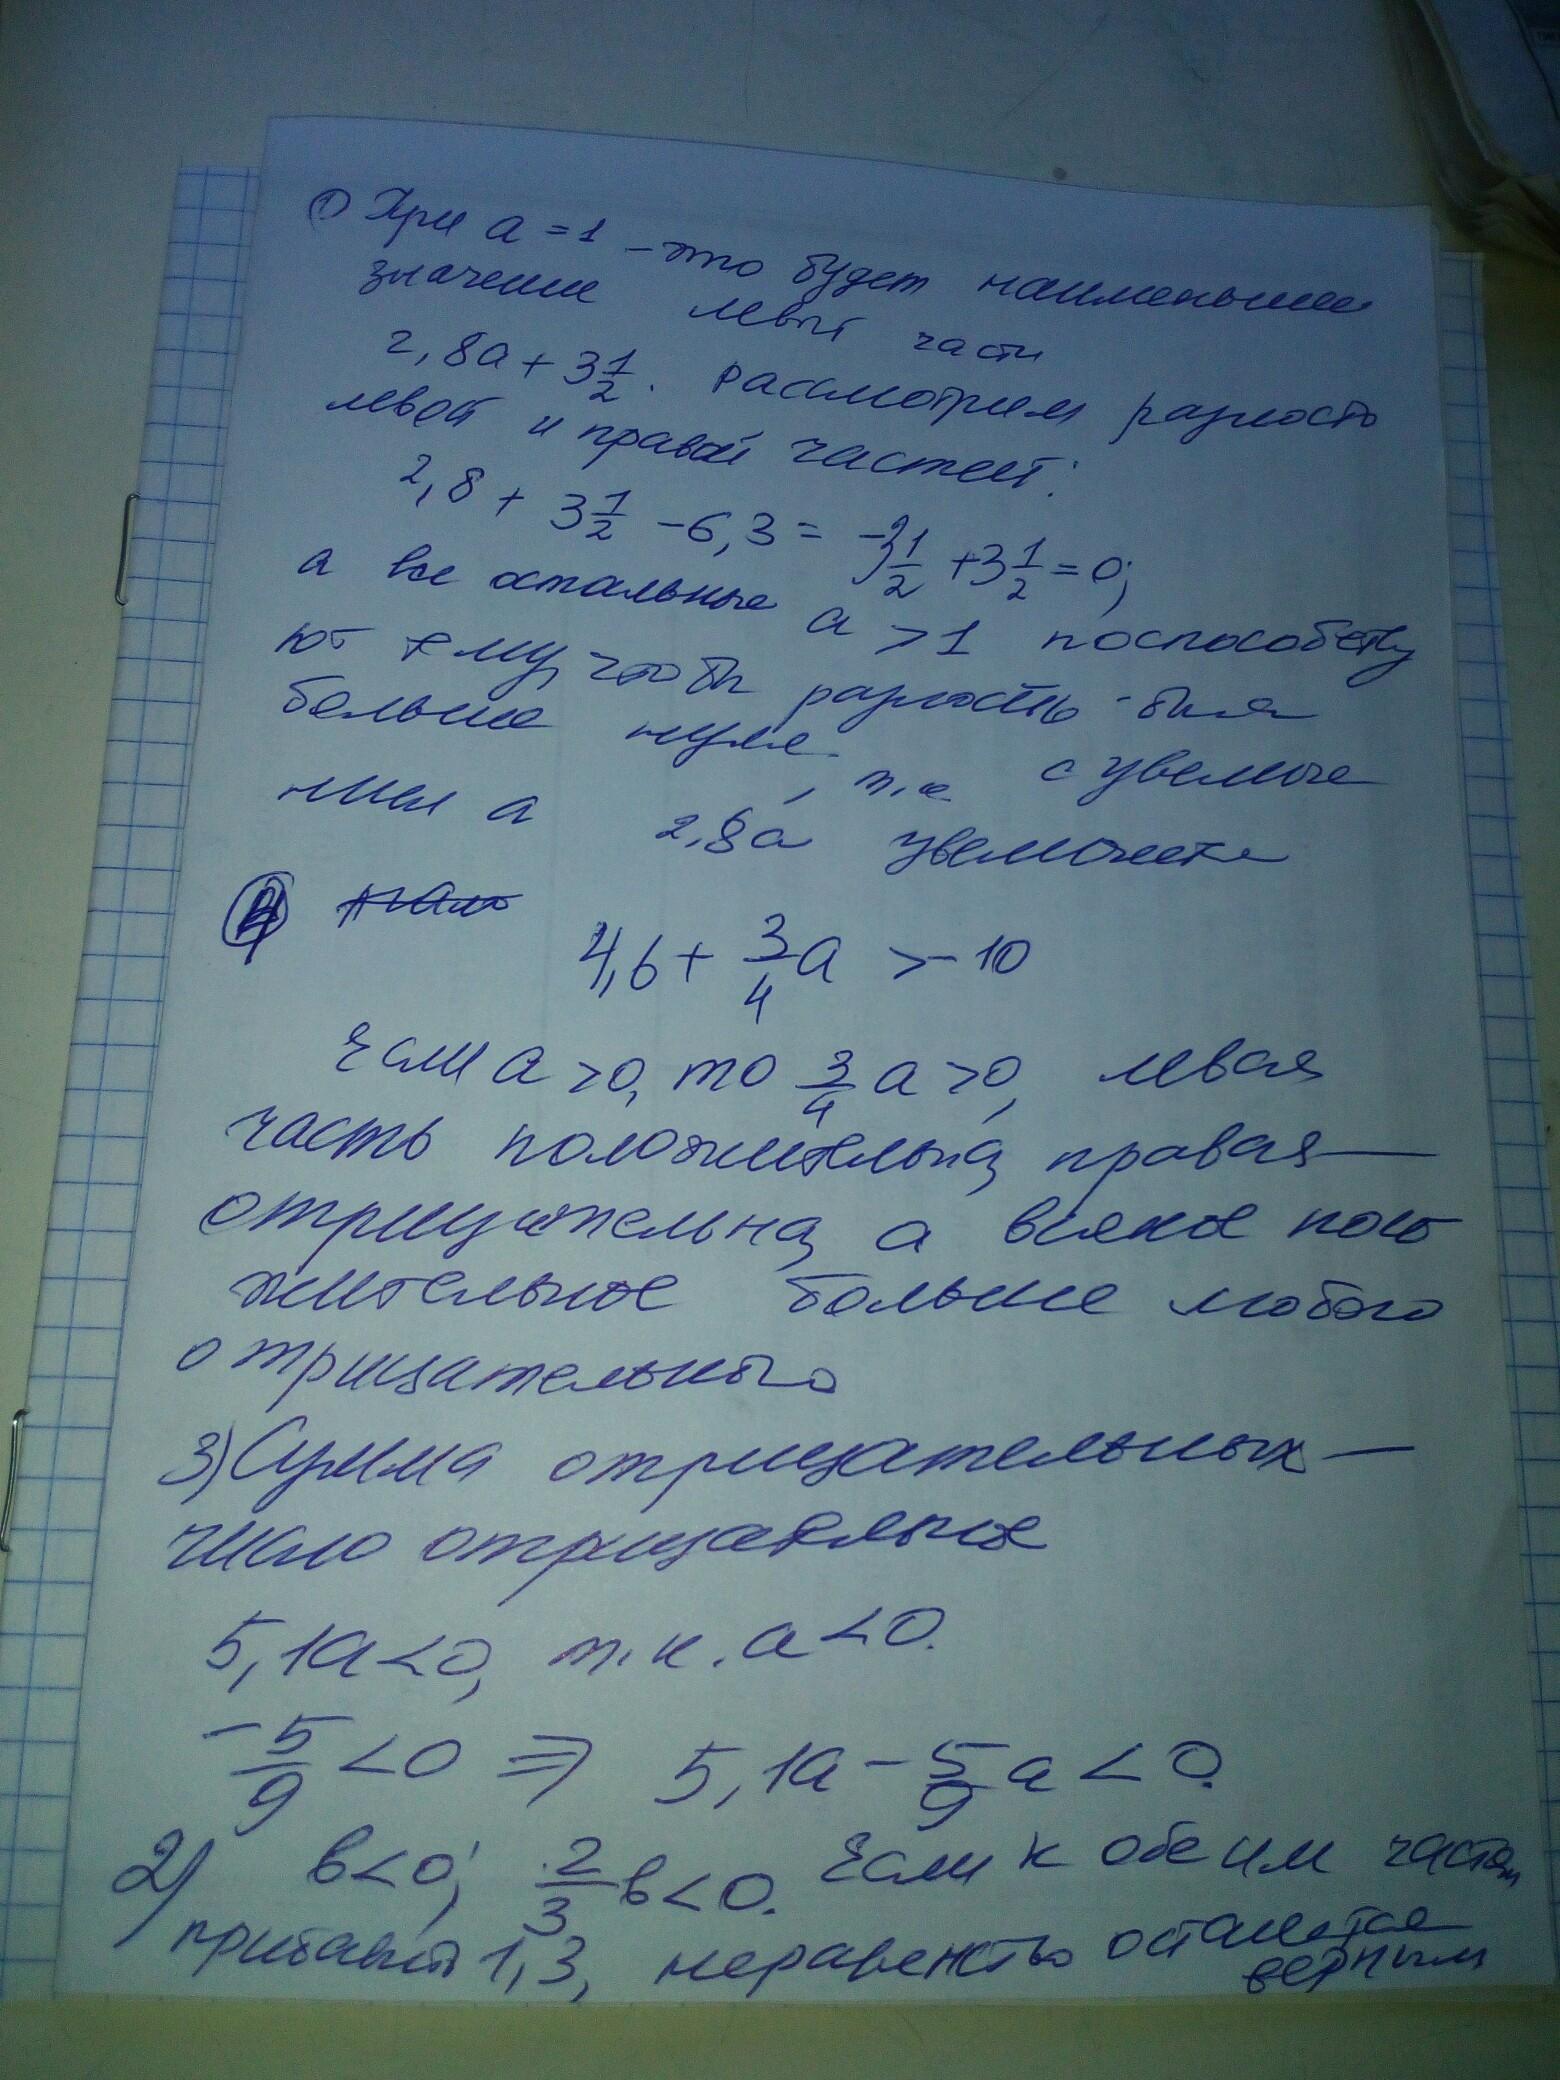 ① При a = 1 – это будет наименьшее
значение левой части
2,8a + 3 1/2. Рассмотрим разность
левой и правой частей:
2,8 + 3 1/2 – 6,3 = -3 1/2 + 3 1/2 = 0;
а все остальные a > 1 поспособству
ют тому, чтобы разность была
больше нуля, т.к с увеличе
нием a 2,8a увеличится
④ 4,6 + 3/4 a > -10
Если a > 0, то 3/4 a > 0, левая
часть положительна, правая —
отрицательна, а всякое поло
жительное больше любого
отрицательного
3) Сумма отрицательных —
число отрицательное
5,1a < 0, т.к. a < 0.
-5/9 < 0 ⇒ 5,1a - 5/9 a < 0.
2) в < 0; 2/3 в < 0. Если к обеим частям
прибавить 1,3, неравенство останется
верным